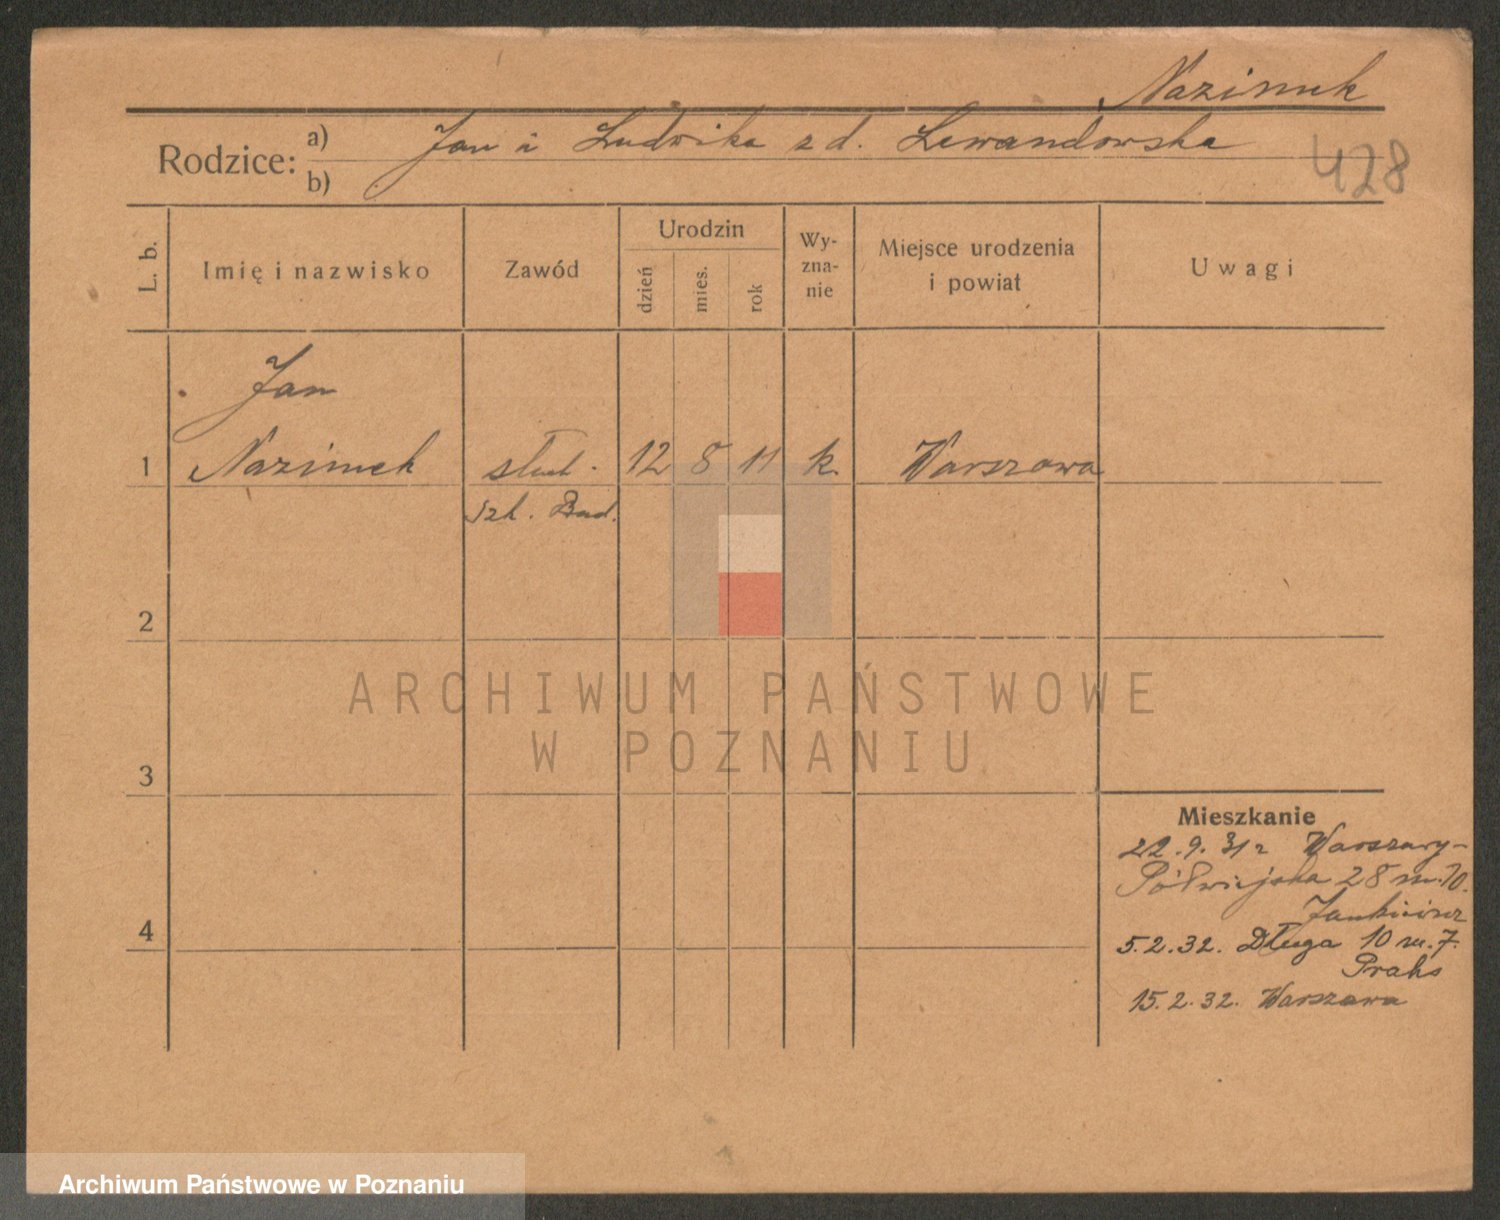 Nazimek
Rodzice: a) Jan i Ludwika z d. Lewandowska
b)
428
L. b.
Imię i nazwisko
Zawód
Urodzin
dzień
mies.
rok
Wy-
zna-
nie
Miejsce urodzenia
i powiat
Uwagi
Jan
1 Nazimek stud. 12 8 11 k. Warszawa
Szk. Bud.
2
3
4
Mieszkanie
22.9.31 r Warszawy-
Półwiejska 28 m. 10.
5.2.32. Długa 10 m. 7.
Prahs
15.2.32. Warszawa
ARCHIWUM PAŃSTWOWE
W POZNANIU
Archiwum Państwowe w Poznaniu